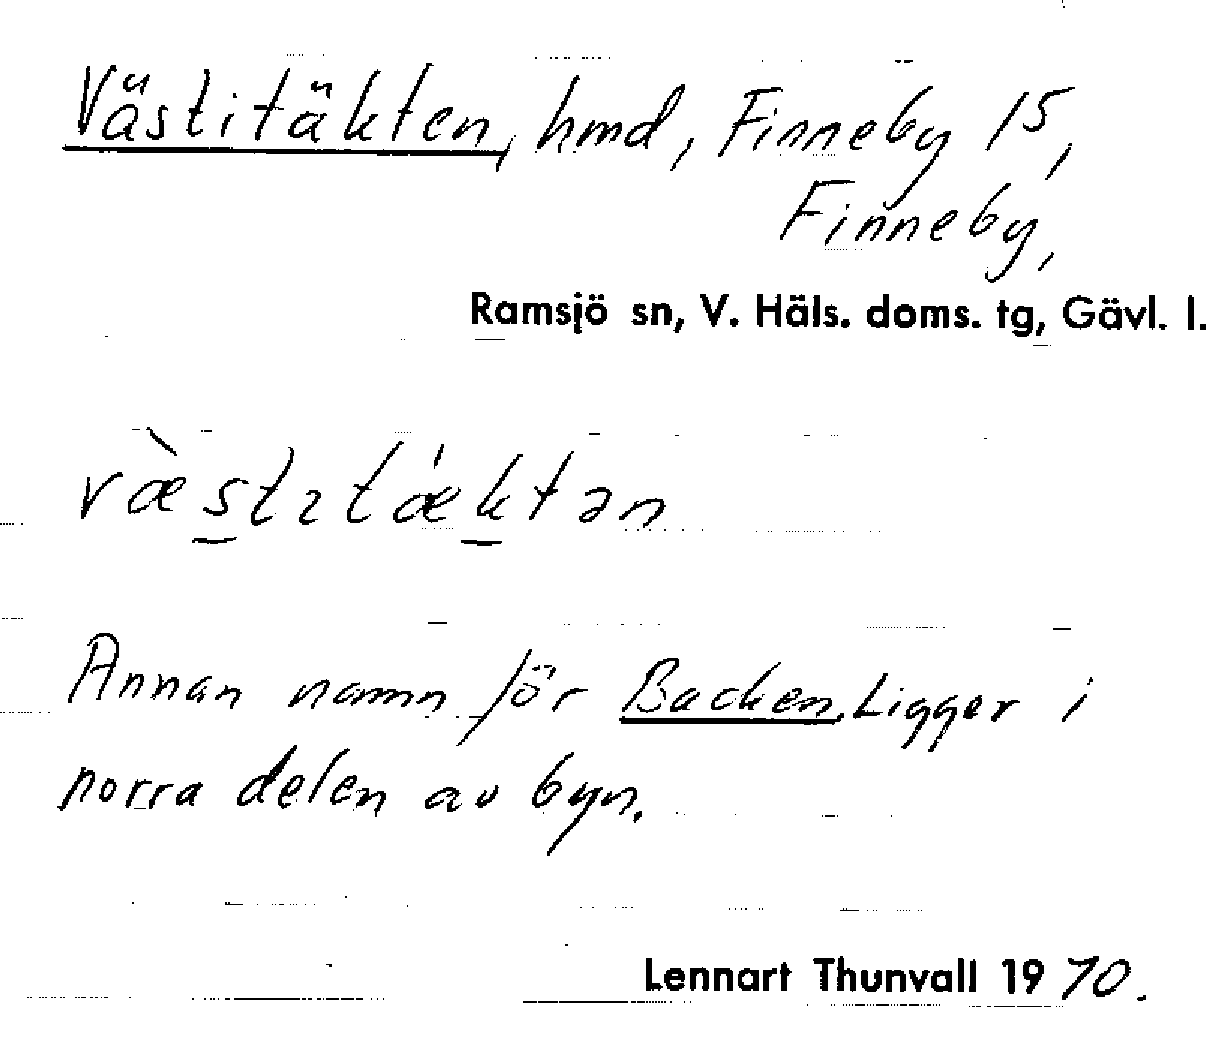 Västitäkten, hmd, Finneby 15,
Finneby,
Ramsjö sn, V. Häls. doms. tg, Gävl. l.
væ̀s̠tıtǽk̠tən
Annan namn för Backen. Ligger i
norra delen av byn.
Lennart Thunvall 1970.